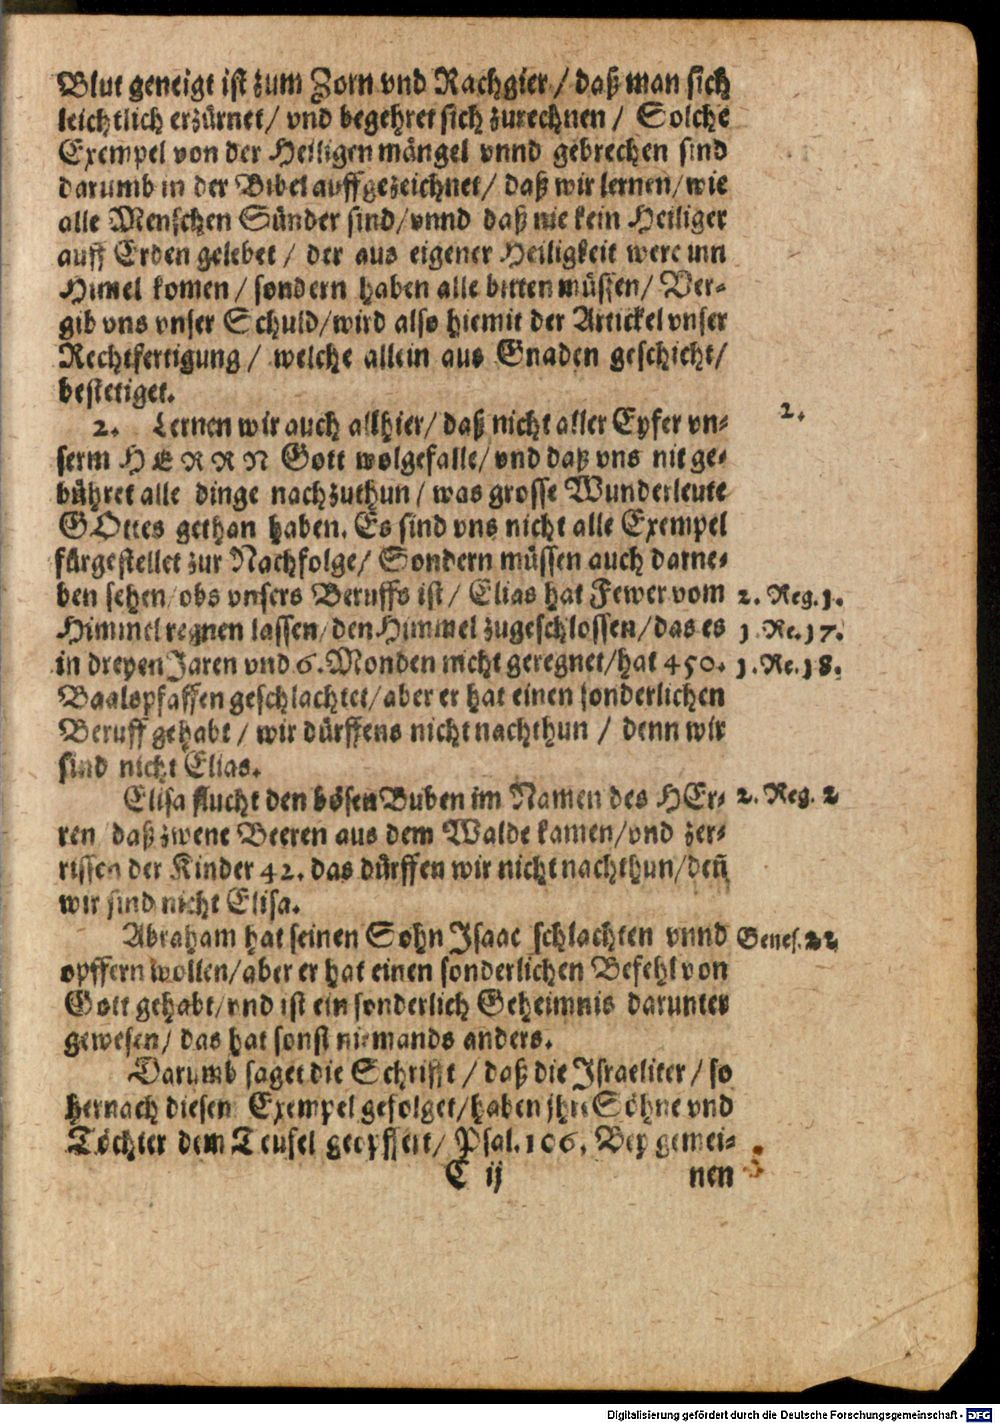 Blut geneigt ist zum Zorn vnd Rachgier / daß man sich
leichtlich erzürnet / vnd begehret sich zurechnen / Solche
Exempel von der Heiligen mängel vnnd gebrechen sind
darumb in der Bibel auffgezeichnet / daß wir lernen / wie
alle Menschen Sünder sind / vnnd daß nie kein Heiliger
auff Erden gelebet / der aus eigener Heiligkeit were inn
Himel komen / sondern haben alle bitten müssen / Ver-
gib vns vnser Schuld / wird also hiemit der Artickel vnser
Rechtfertigung / welche allein aus Gnaden geschicht /
bestetiget.
2. Lernen wir auch allhier / daß nicht aller Eyfer vn- 2.
serm HERRN Gott wolgefalle / vnd daß vns nit ge-
bühret alle dinge nachzuthun / was grosse Wunderleute
GOttes gethan haben. Es sind vns nicht alle Exempel
fürgestellet zur Nachfolge / Sondern müssen auch darne-
ben sehen / obs vnsers Beruffs ist / Elias hat Fewer vom 2. Reg. 1.
Himmel regnen lassen / den Himmel zugeschlossen / das es 1. Re. 17.
in dreyen Jaren vnd 6. Monden nicht geregnet / hat 450. 1. Re. 18.
Baalspfaffen geschlachtet / aber er hat einen sonderlichen
Beruff gehabt / wir dürffens nicht nachthun / denn wir
sind nicht Elias.
Elisa flucht den bösen Buben im Namen des HEr- 2. Reg. 2
ren daß zwene Beeren aus dem Walde kamen / vnd zer-
rissen der Kinder 42. das dürffen wir nicht nachthun / deñ
wir sind nicht Elisa.
Abraham hat seinen Sohn Isaac schlachten vnnd Genes. 22
opffern wollen / aber er hat einen sonderlichen Befehl von
Gott gehabt / vnd ist ein sonderlich Geheimnis darunter
gewesen / das hat sonst niemands anders.
Darumb saget die Schrifft / daß die Israeliter / so
hernach diesen Exempel gefolget / haben jhre Söhne vnd
Töchter dem Teufel geopffert / Psal. 106. Bey gemei-
C ij nen
Digitalisierung gefördert durch die Deutsche Forschungsgemeinschaft - DFG